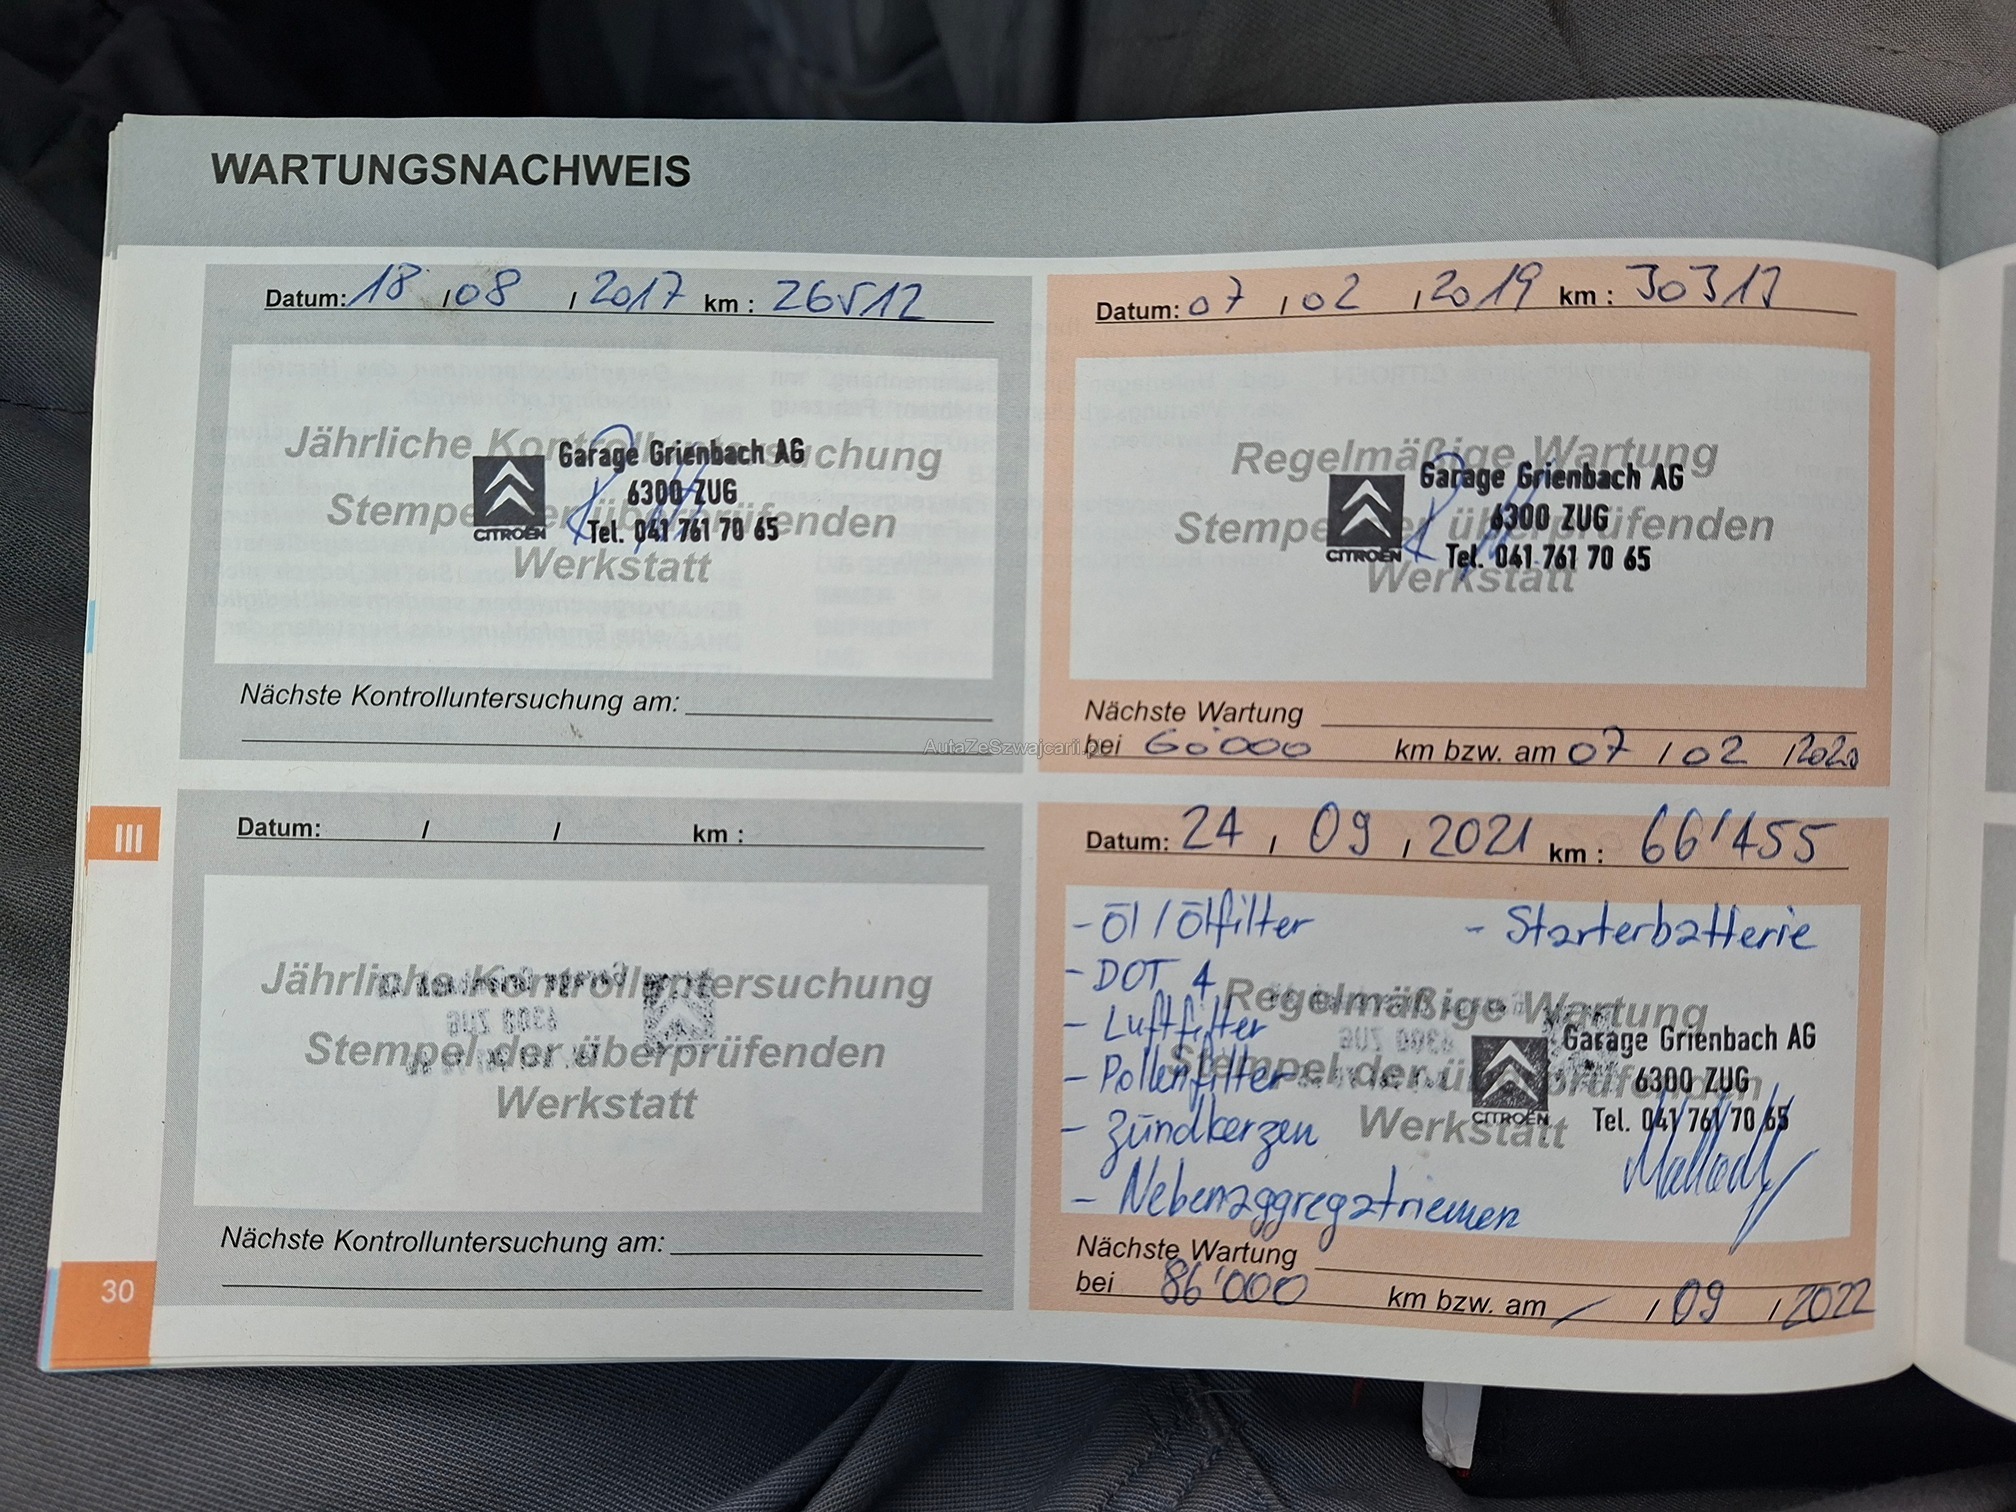 WARTUNGSNACHWEIS
Datum: 18 / 08 / 2017 km : 26512
Jährliche Kontrolluntersuchung
Stempel der überprüfenden
Werkstatt
Garage Grienbach AG
6300 ZUG
Tel. 041 761 70 65
CITROËN
Nächste Kontrolluntersuchung am:
Datum: 07 / 02 / 2019 km :
Regelmäßige Wartung
Stempel der überprüfenden
Werkstatt
Garage Grienbach AG
6300 ZUG
Tel. 041 761 70 65
CITROËN
Nächste Wartung
bei 60'000 km bzw. am 07 / 02 / 2020
AutaZeSzwajcarii.pl
Datum: / / km :
Jährliche Kontrolluntersuchung
Stempel der überprüfenden
Werkstatt
Nächste Kontrolluntersuchung am:
Datum: 24 / 09 / 2021 km : 66'455
- Öl / Ölfilter - Starterbatterie
- DOT 4
- Luftfilter
- Pollenfilter
- Zündkerzen
- Nebenaggregatriemen
Regelmäßige Wartung
Stempel der überprüfenden
Werkstatt
Garage Grienbach AG
6300 ZUG
Tel. 041 761 70 65
CITROËN
Nächste Wartung
bei 86'000 km bzw. am / / 09 / 2022
III
30